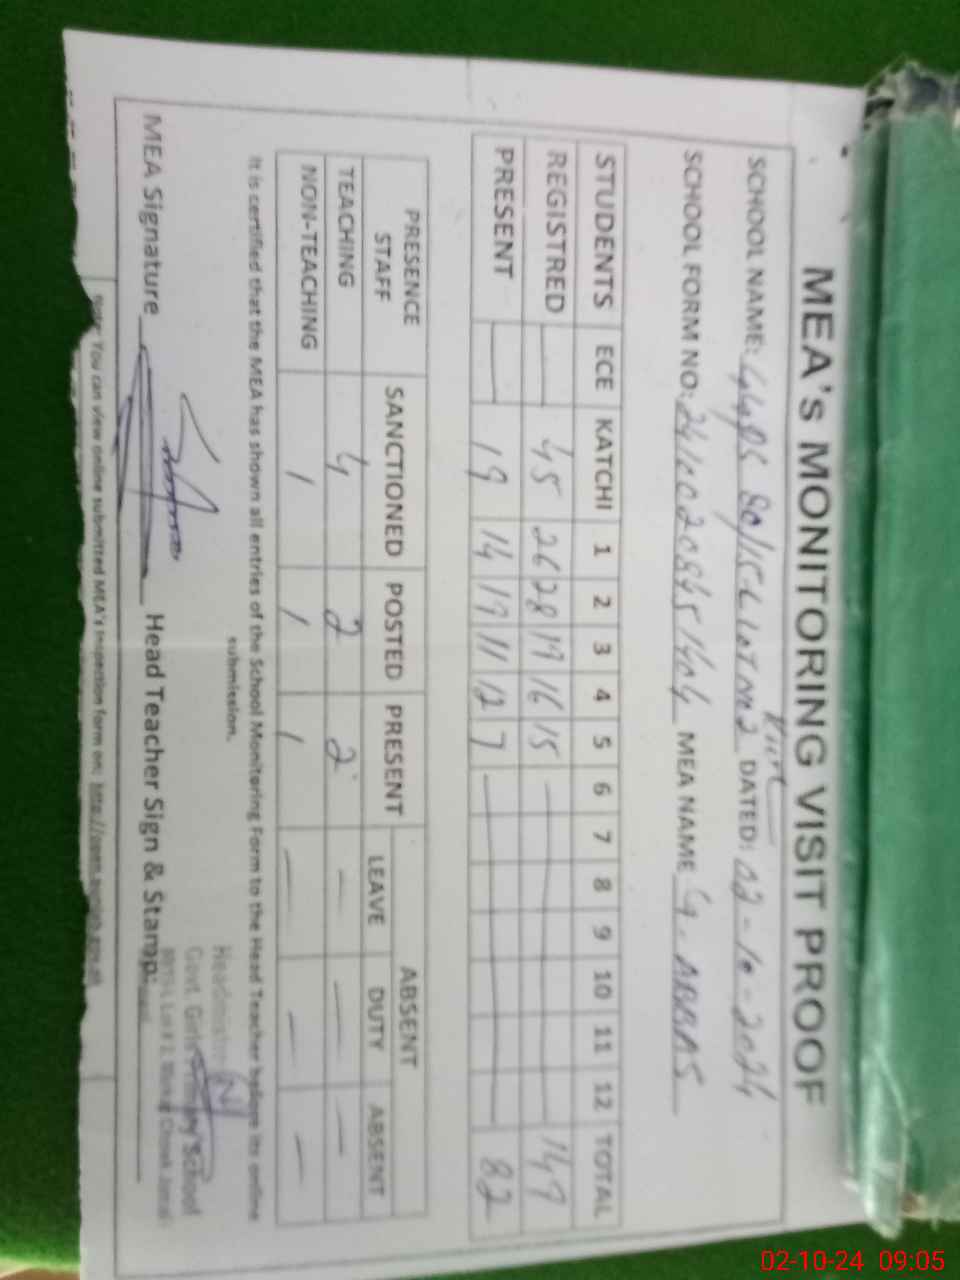 MEA's MONITORING VISIT PROOF
SCHOOL NAME: GGPS 80/15-L LOT No 2 DATED: 02-10-2024
SCHOOL FORM NO: MEA NAME G. ABBAS
STUDENTS ECE KATCHI 1 2 3 4 5 6 7 8 9 10 11 12 TOTAL
REGISTRED — 45 26 28 19 16 15 — 149
PRESENT — 19 14 19 11 12 7 — 82
PRESENCE STAFF SANCTIONED POSTED PRESENT ABSENT
LEAVE DUTY ABSENT
TEACHING 4 2 2 — — —
NON-TEACHING 1 1 1 — — —
It is certified that the MEA has shown all entries of the School Monitoring Form to the Head Teacher before its online
submission.
MEA Signature Head Teacher Sign & Stamp:
Govt. Girls Primary School
Note: You can view online submitted MEA's inspection form on:
02-10-24 09:05